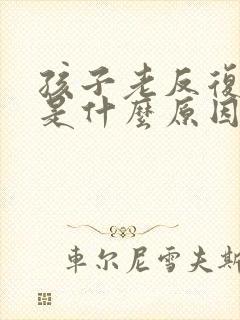 孩子老反復
是什麼原因
車尔尼雪夫斯